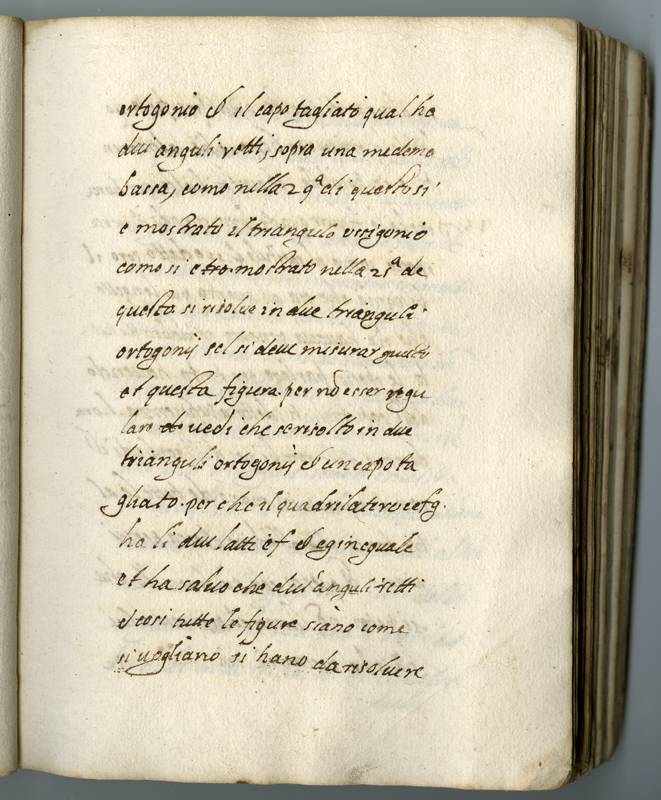 ortogonio & il capo tagliato qual ha
dui anguli retti, sopra una medema
bassa, como nella 29ª di questo si
e mostrato il triangulo oxigonio
como si e mostrato nella 25ª de
questa si risolve in due trianguli
ortogonij sel si deve misurar giusto
et questa figura per nō esser regu
lare vedi che se risolto in due
trianguli ortogonij & un capo ta
gliato. perche il quadrilatero cefg.
ha li dui latti ef & eg inequale
et ha salvo che dui anguli retti
& cosi tutte le figure siano come
si vogliano si hano da risolvere